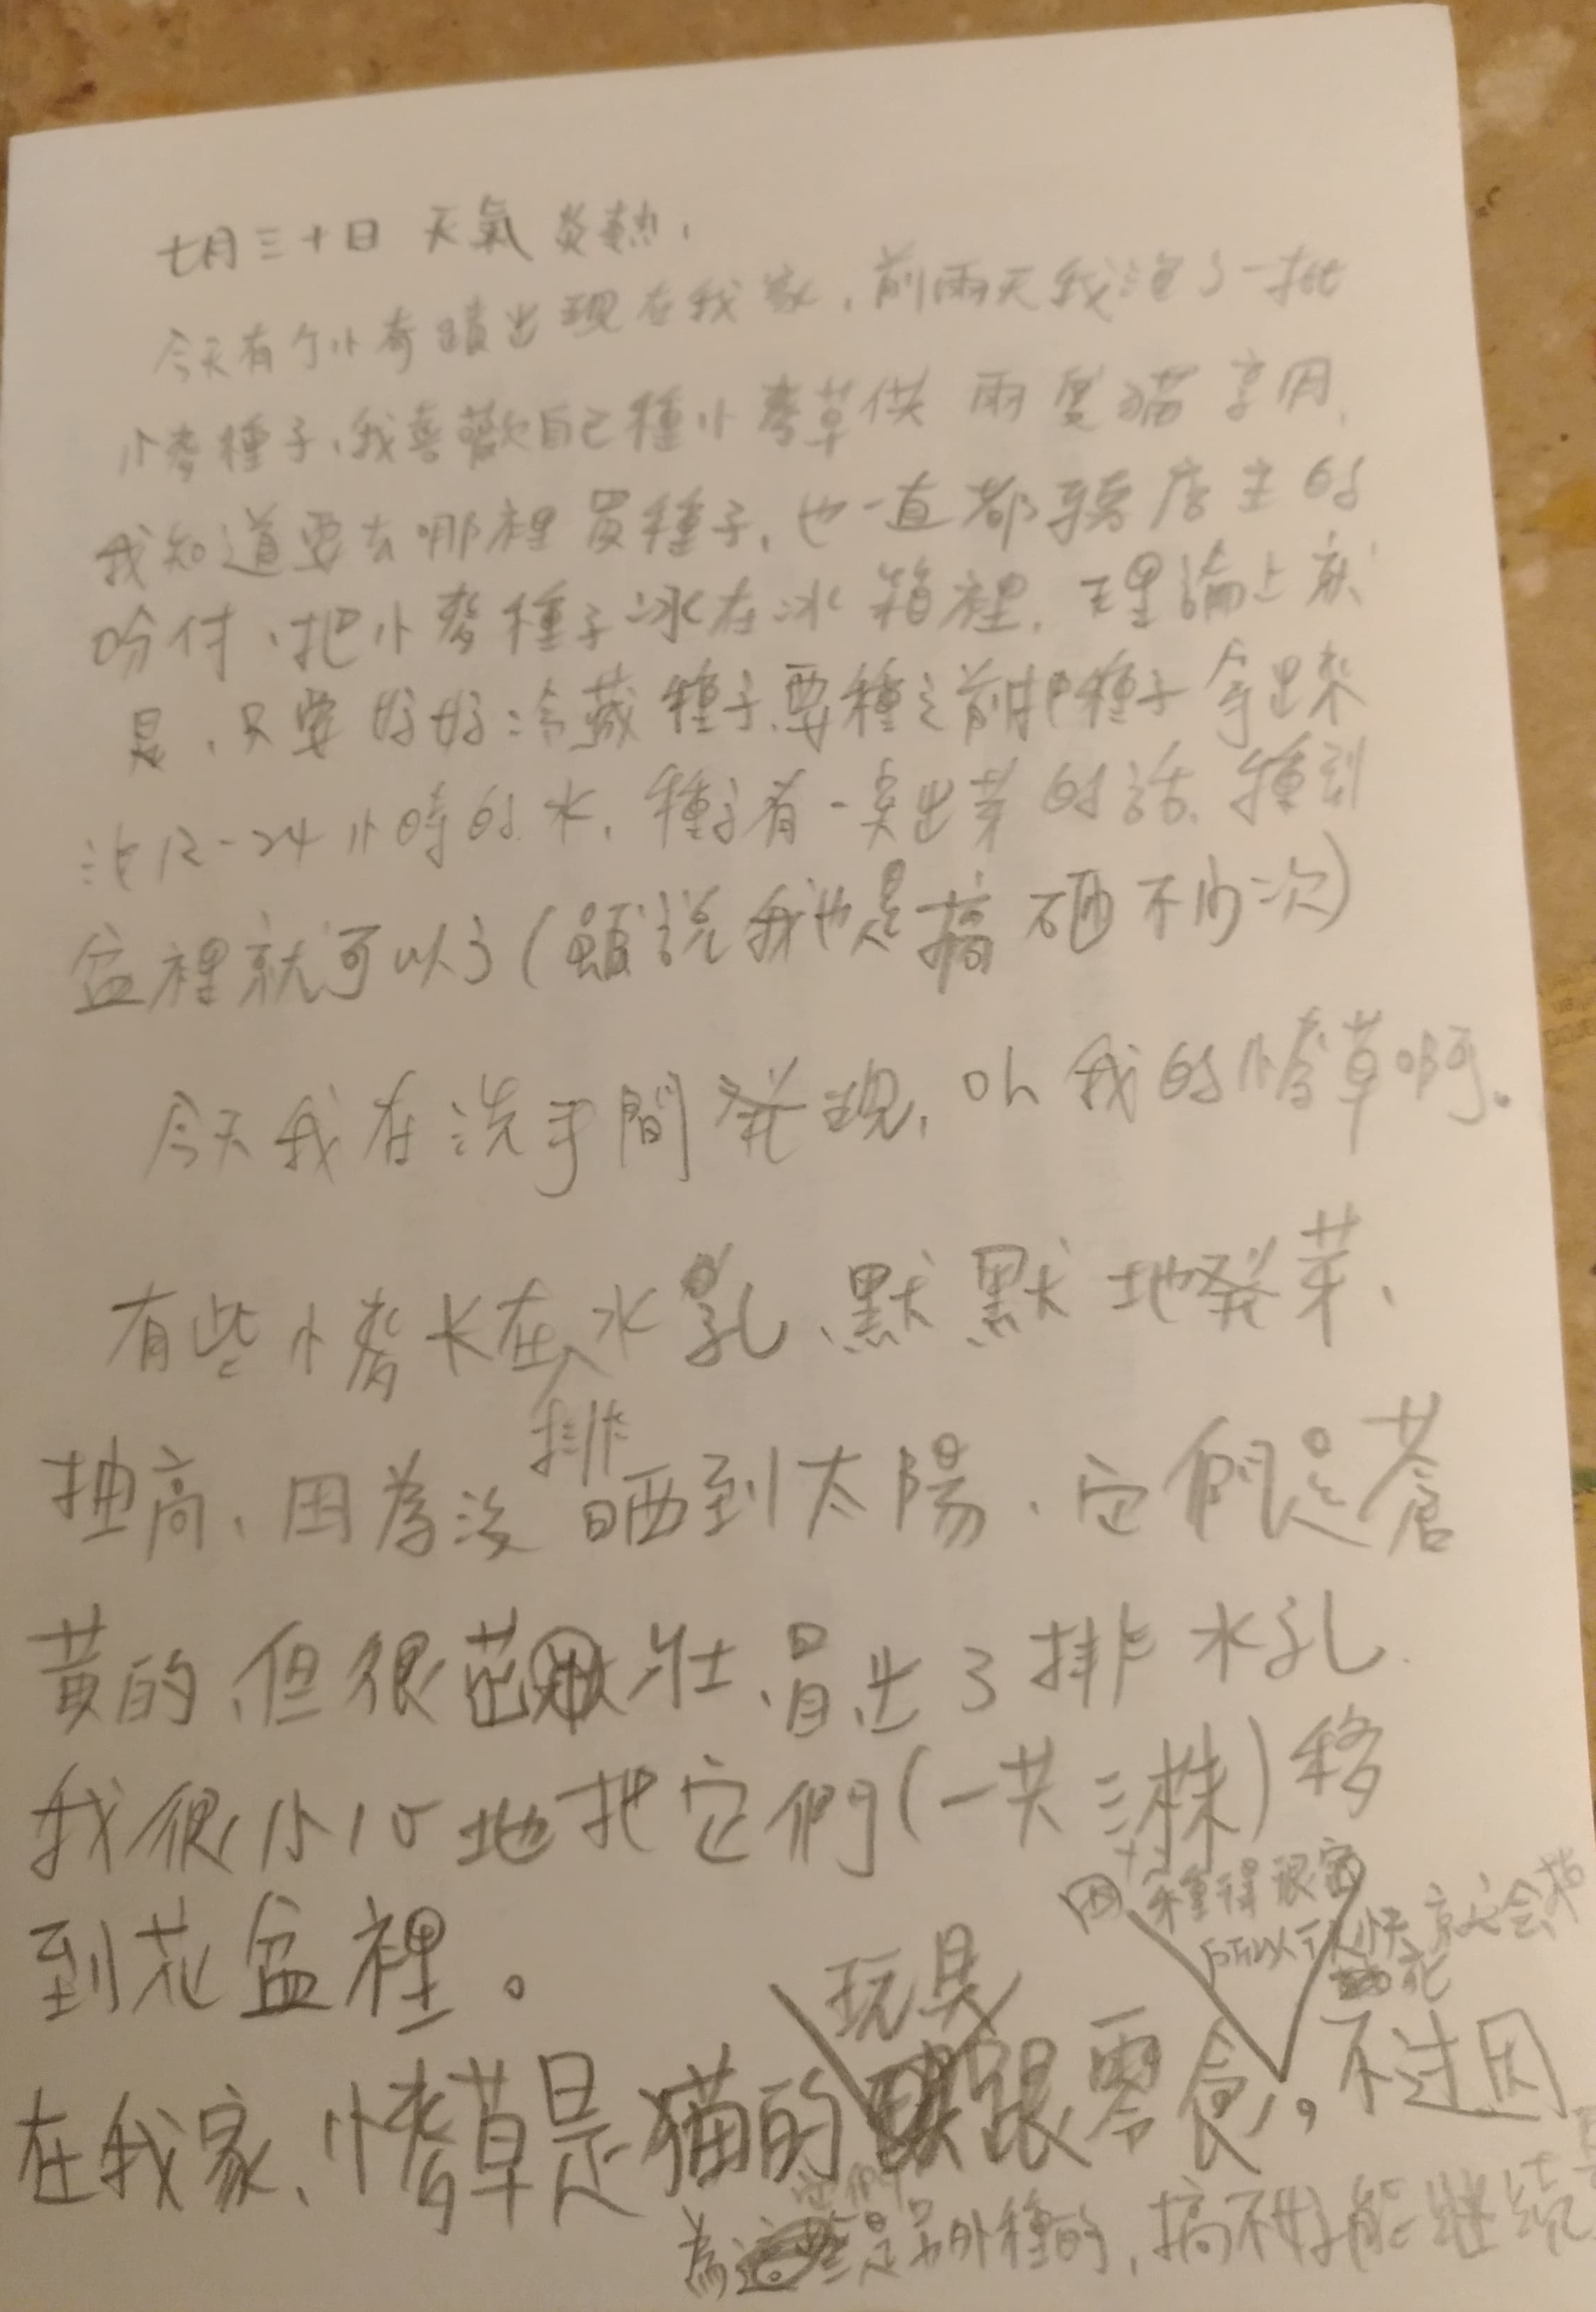 七月三十日 天氣炎熱，
今天有个小奇蹟出現在我家，前兩天我泡了一批
小麥種子，我喜歡自己種小麥草供兩隻貓享用，
我知道要去哪裡買種子，也一直都聽店主的
吩付，把小麥種子冰在冰箱裡，理論上就
是，只要好好冷藏種子，要種之前把種子拿出來
泡12-24小時的水，種子有一突出芽的話，種到
盆裡就可以了（雖說我也是搞砸不少次）
今天我在洗手間発現，叫我的小麥草啊。
有些小麥长在排水孔，默默地発芽、
抽高，因為沒晒到太陽，它們是蒼
黃的，但很茁壯，冒出了排水孔
我很小心地把它們（一共三株）移
到花盆裡。
在我家，小麥草是貓的玩具跟零食，
因種得很密
所以不快就会枯
死
。不过因
為它們是另外種的，搞不好能継続